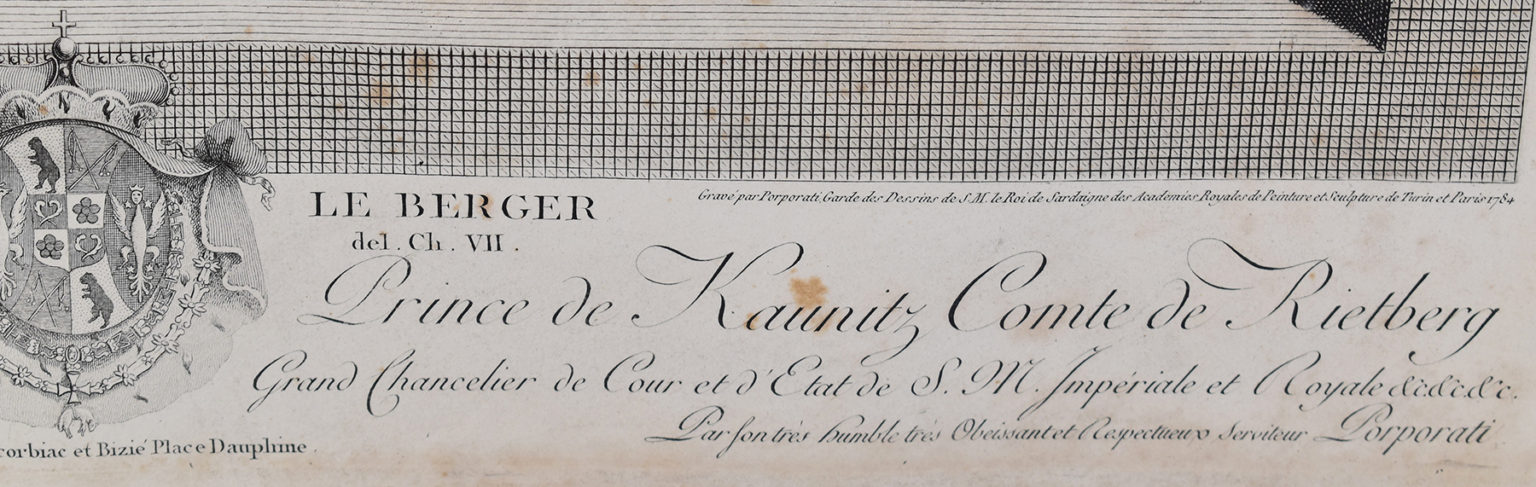 Gravé par Porporati, Garde des Dessins de S.M. le Roi de Sardaigne des Academies Royales de Peinture et Sculpture de Turin et Paris 1784
LE BERGER
del. Ch. VII.
Prince de Kaunitz Comte de Rietberg
Grand Chancelier de Cour et d'Etat de S. M. Impériale et Royale &c.&c.&c.
Par son très humble très Obeissant et Respectueux Serviteur Porporati
corbiac et Bizié Place Dauphine